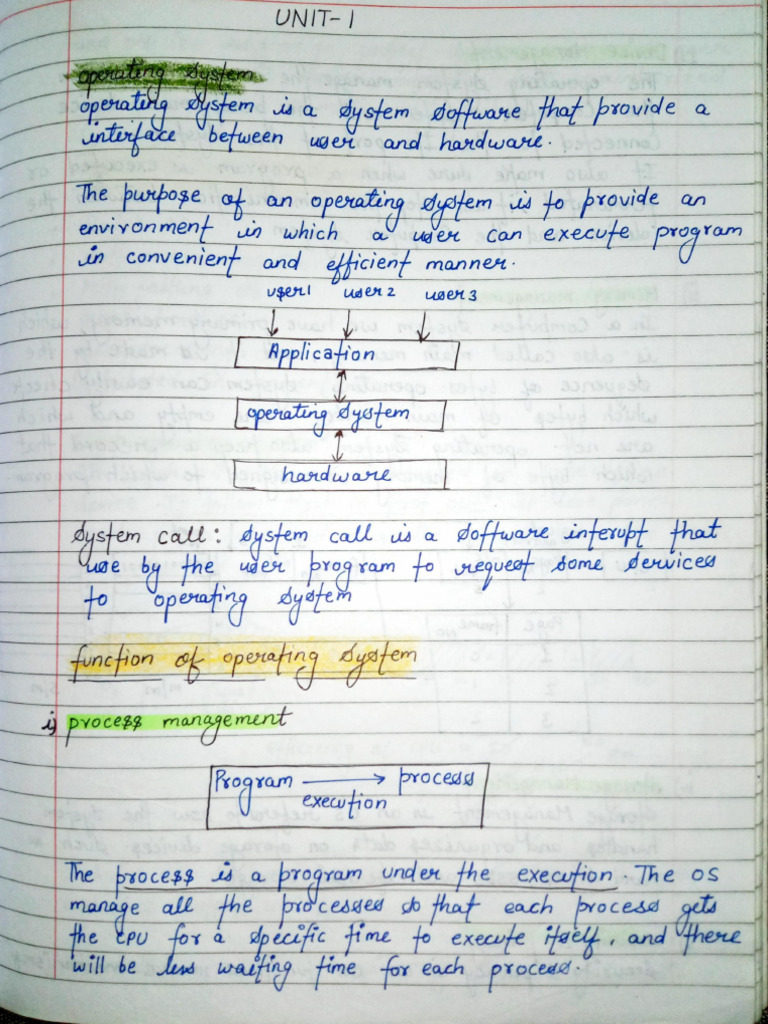 UNIT-1
operating System
operating System is a System Software that provide a
interface between user and hardware.
The purpose of an operating System is to provide an
environment in which a user can execute program
in convenient and efficient manner.
user1 user2 user3
Application
operating System
hardware
System call: System call is a Software interupt that
use by the user program to request Some Services
to operating System
function of operating System
i) process management
Program → process
execution
The process is a program under the execution. The OS
manage all the processes so that each process gets
the CPU for a specific time to execute itself, and there
will be less waiting time for each process.